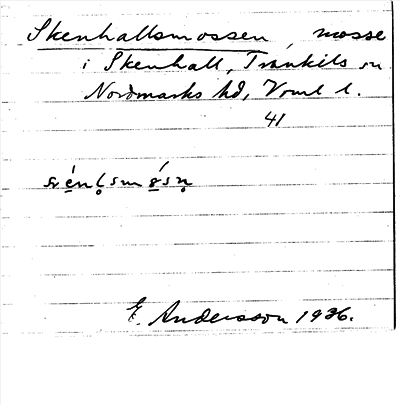 Skenhallsmossen, mosse
i Skenhall, Trankils sn
Nordmarks hd, Vrml l.
41
E. Andersson 1936.